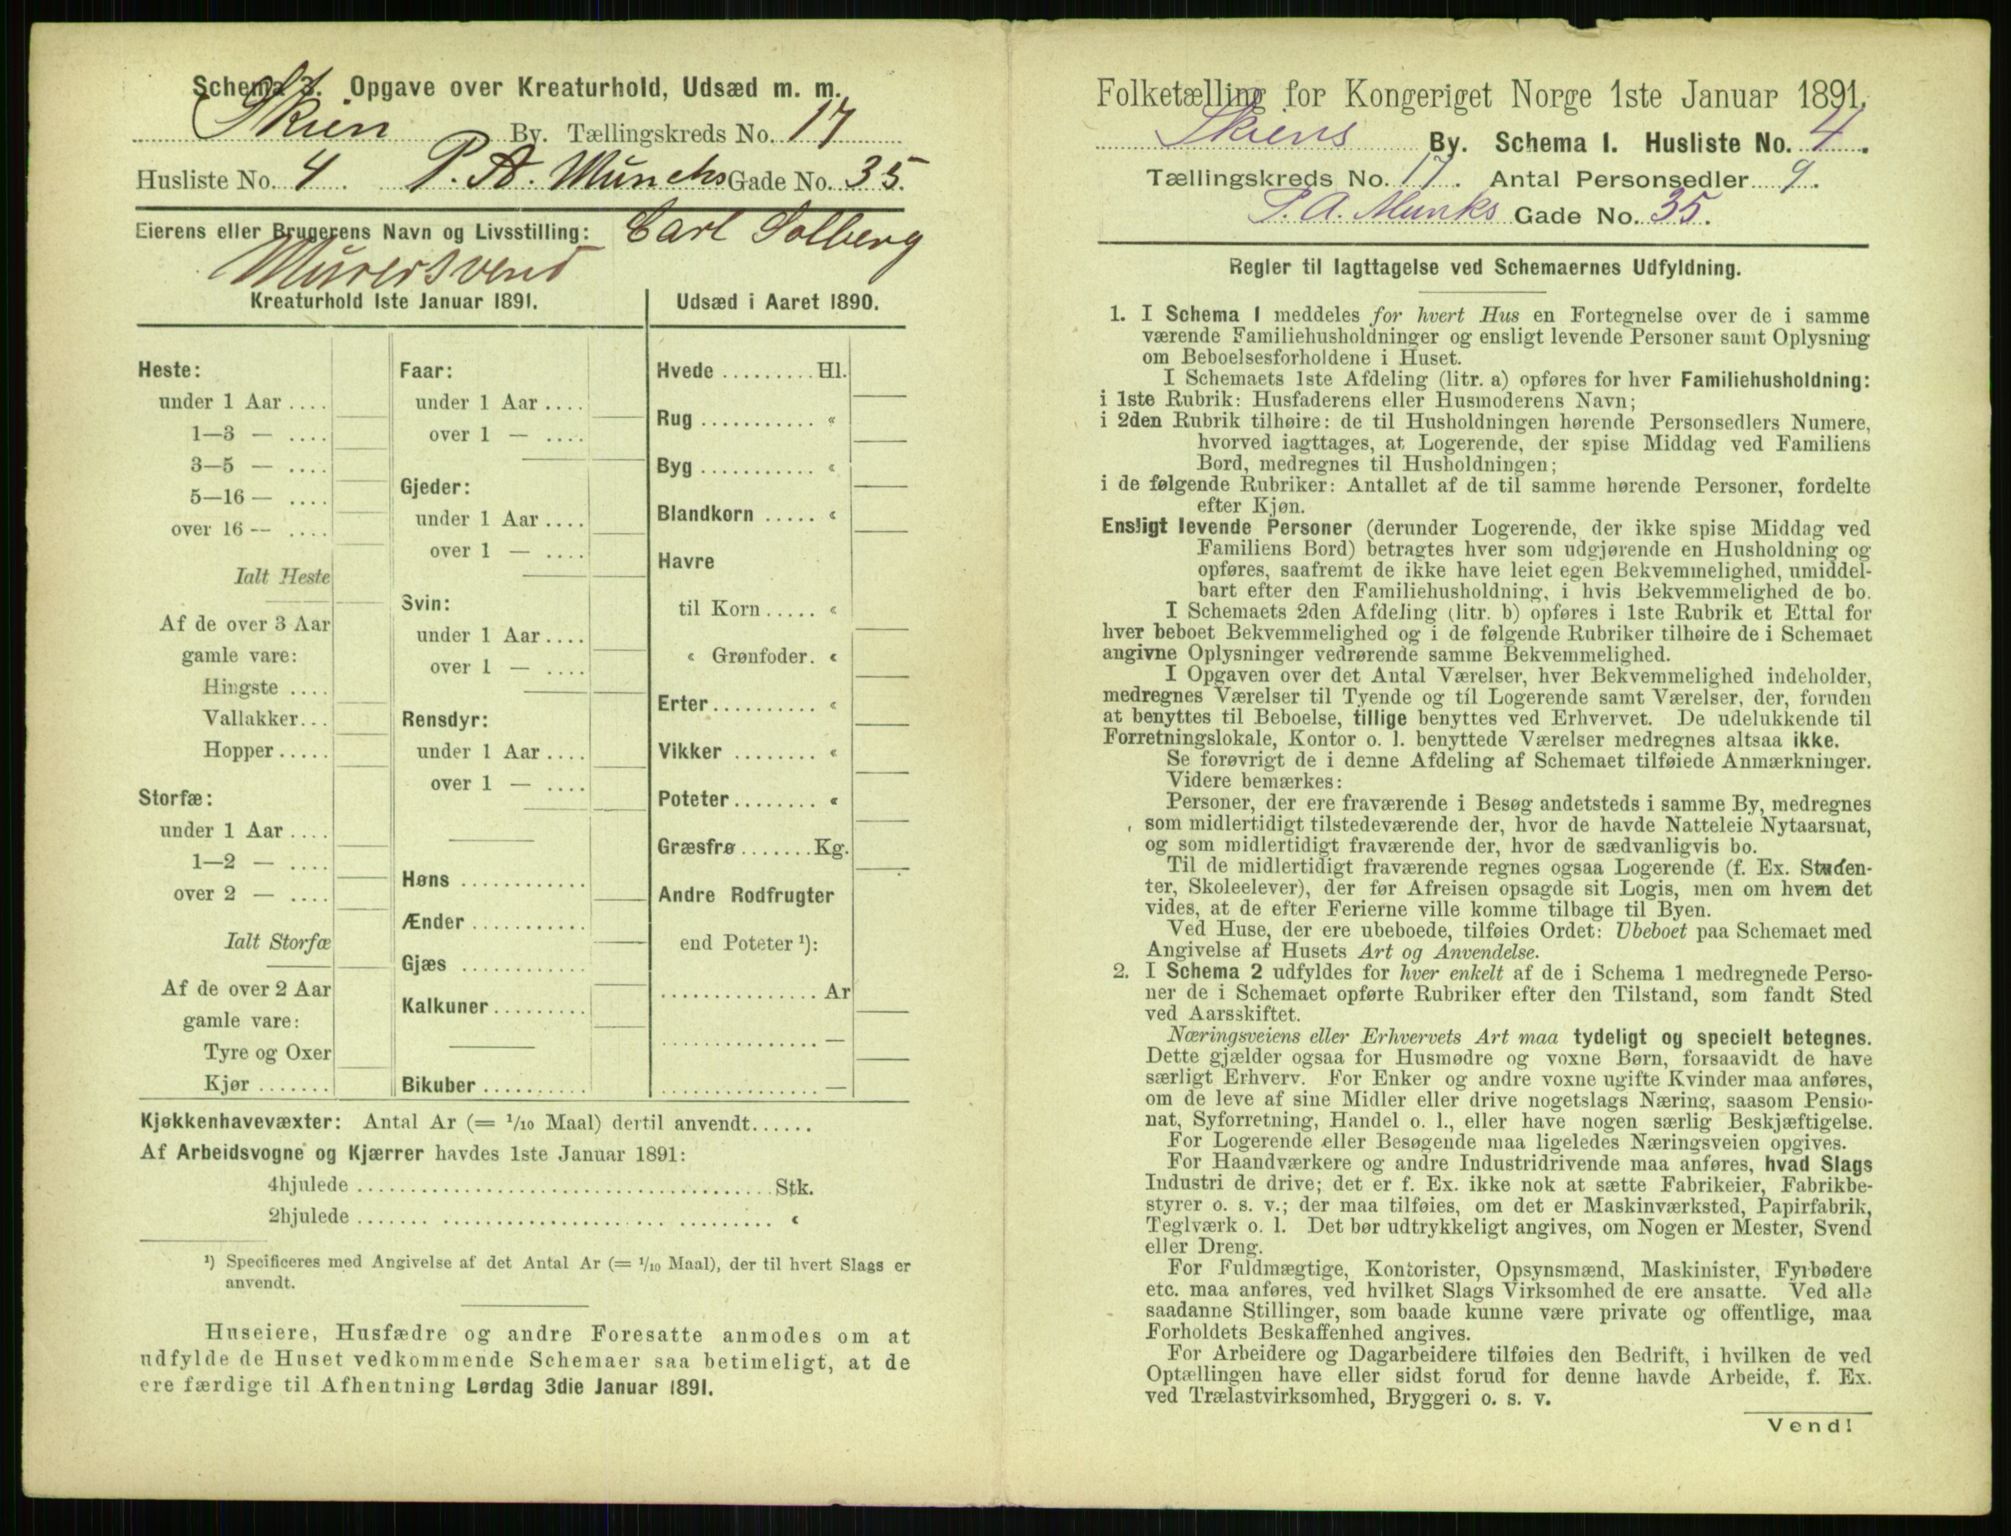 Schema 3. Opgave over Kreaturhold, Udsæd m. m.
Skien By. Tællingskreds No. 17
Husliste No. 4. P. A. Munchs Gade No. 35.
Eierens eller Brugerens Navn og Livsstilling: Carl Solberg
Murersvend
Kreaturhold 1ste Januar 1891.
Heste:
under 1 Aar ....
1—3 — ....
3—5 — ....
5—16 — ....
over 16 — ....
Ialt Heste
Af de over 3 Aar
gamle vare:
Hingste ....
Vallakker...
Hopper.....
Storfæ:
under 1 Aar ....
1—2 — ....
over 2 — ....
Ialt Storfæ
Af de over 2 Aar
gamle vare:
Tyre og Oxer
Kjør .......
Faar:
under 1 Aar ....
over 1 — ....
Gjeder:
under 1 Aar ....
over 1 — ....
Svin:
under 1 Aar ....
over 1 — ....
Rensdyr:
under 1 Aar ....
over 1 — ....
Høns ............
Ænder ...........
Gjæs ............
Kalkuner.........
Bikuber ..........
Udsæd i Aaret 1890.
Hvede .........Hl.
Rug ........... «
Byg ........... «
Blandkorn ..... «
Havre
til Korn..... «
« Grønfoder. «
Erter.......... «
Vikker ........ «
Poteter........ «
Græsfrø.......Kg.
Andre Rodfrugter
end Poteter ¹):
............... Ar
............... —
............... —
Kjøkkenhavevæxter: Antal Ar (= 1/10 Maal) dertil anvendt......
Af Arbeidsvogne og Kjærrer havdes 1ste Januar 1891:
4hjulede ....................................... Stk.
2hjulede ....................................... «
¹) Specificeres med Angivelse af det Antal Ar (= 1/10 Maal), der til hvert Slags er
anvendt.
Huseiere, Husfædre og andre Foresatte anmodes om at
udfylde de Huset vedkommende Schemaer saa betimeligt, at de
ere færdige til Afhentning Lørdag 3die Januar 1891.
Folketælling for Kongeriget Norge 1ste Januar 1891.
Skiens By. Schema I. Husliste No. 4.
Tællingskreds No. 17. Antal Personsedler 9.
P. A. Munks Gade No. 35.
Regler til Iagttagelse ved Schemaernes Udfyldning.
1. I Schema I meddeles for hvert Hus en Fortegnelse over de i samme
værende Familiehusholdninger og ensligt levende Personer samt Oplysning
om Beboelsesforholdene i Huset.
I Schemaets 1ste Afdeling (litr. a) opføres for hver Familiehusholdning:
i 1ste Rubrik: Husfaderens eller Husmoderens Navn;
i 2den Rubrik tilhøire: de til Husholdningen hørende Personsedlers Numere,
hvorved iagttages, at Logerende, der spise Middag ved Familiens
Bord, medregnes til Husholdningen;
i de følgende Rubriker: Antallet af de til samme hørende Personer, fordelte
efter Kjøn.
Ensligt levende Personer (derunder Logerende, der ikke spise Middag ved
Familiens Bord) betragtes hver som udgjørende en Husholdning og
opføres, saafremt de ikke have leiet egen Bekvemmelighed, umiddel-
bart efter den Familiehusholdning, i hvis Bekvemmelighed de bo.
I Schemaets 2den Afdeling (litr. b) opføres i 1ste Rubrik et Ettal for
hver beboet Bekvemmelighed og i de følgende Rubriker tilhøire de i Schemaet
angivne Oplysninger vedrørende samme Bekvemmelighed.
I Opgaven over det Antal Værelser, hver Bekvemmelighed indeholder,
medregnes Værelser til Tyende og til Logerende samt Værelser, der, foruden
at benyttes til Beboelse, tillige benyttes ved Erhvervet. De udelukkende til
Forretningslokale, Kontor o. l. benyttede Værelser medregnes altsaa ikke.
Se forøvrigt de i denne Afdeling af Schemaet tilføiede Anmærkninger.
Videre bemærkes:
Personer, der ere fraværende i Besøg andetsteds i samme By, medregnes
som midlertidigt tilstedeværende der, hvor de havde Natteleie Nytaarsnat,
og som midlertidigt fraværende der, hvor de sædvanligvis bo.
Til de midlertidigt fraværende regnes ogsaa Logerende (f. Ex. Studen-
ter, Skoleelever), der før Afreisen opsagde sit Logis, men om hvem det
vides, at de efter Ferierne ville komme tilbage til Byen.
Ved Huse, der ere ubeboede, tilføies Ordet: Ubeboet paa Schemaet med
Angivelse af Husets Art og Anvendelse.
2. I Schema 2 udfyldes for hver enkelt af de i Schema 1 medregnede Perso-
ner de i Schemaet opførte Rubriker efter den Tilstand, som fandt Sted
ved Aarsskiftet.
Næringsveiens eller Erhvervets Art maa tydeligt og specielt betegnes.
Dette gjælder ogsaa for Husmødre og voxne Børn, forsaavidt de have
særligt Erhverv. For Enker og andre voxne ugifte Kvinder maa anføres,
om de leve af sine Midler eller drive nogetslags Næring, saasom Pensio-
nat, Syforretning, Handel o. l., eller have nogen særlig Beskjæftigelse.
For Logerende eller Besøgende maa ligeledes Næringsveien opgives.
For Haandværkere og andre Industridrivende maa anføres, hvad Slags
Industri de drive; det er f. Ex. ikke nok at sætte Fabrikeier, Fabrikbe-
styrer o. s. v.; der maa tilføies, om det er Maskinværksted, Papirfabrik,
Teglværk o. l. Det bør udtrykkeligt angives, om Nogen er Mester, Svend
eller Dreng.
For Fuldmægtige, Kontorister, Opsynsmænd, Maskinister, Fyrbødere
etc. maa anføres, ved hvilket Slags Virksomhed de ere ansatte. Ved alle
saadanne Stillinger, som baade kunne være private og offentlige, maa
Forholdets Beskaffenhed angives.
For Arbeidere og Dagarbeidere tilføies den Bedrift, i hvilken de ved
Optællingen have eller sidst forud for denne havde Arbeide, f. Ex.
ved Trælastvirksomhed, Bryggeri o. s. v.
Vend!